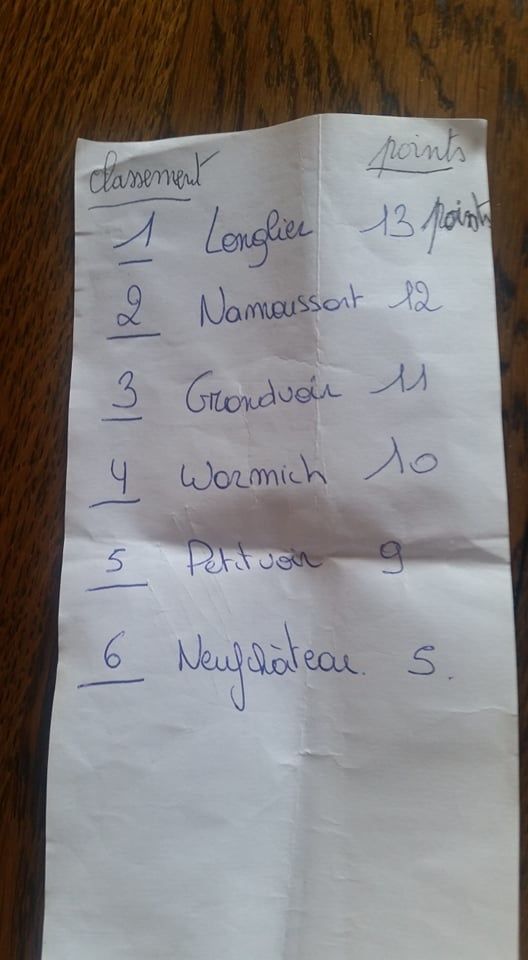 classement points
1 Longlier 13 points
2 Namoussart 12
3 Grandvoir 11
4 Wormich 10
5 Petitvoir 9
6 Neufchâteau. 5.